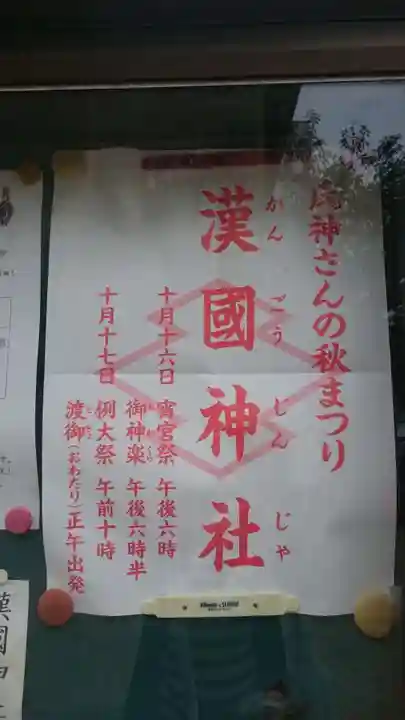 氏神さんの秋まつり
漢國神社
かんごうじんじゃ
十月十六日 宵宮祭 午後六時
御神楽 午後六時半
十月十七日 例大祭 午前十時
渡御(おわたり)正午出発